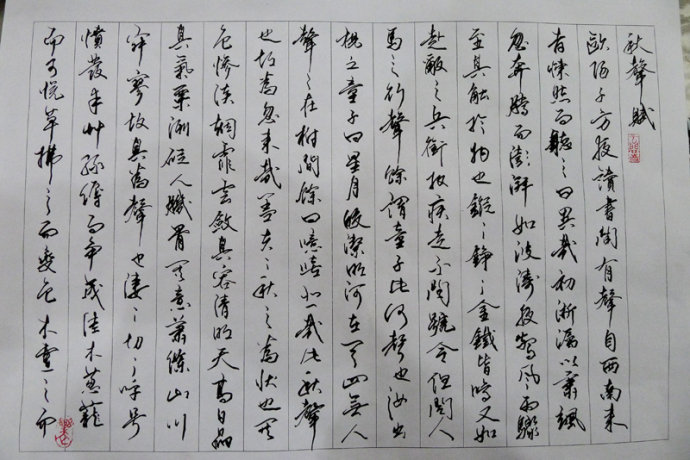 秋聲賦
歐陽子方夜讀書聞有聲自西南来
者悚然而聽之曰異哉初淅瀝以蕭颯
忽奔騰而澎湃如波濤夜驚風雨驟
至其觸於物也鏦〻錚〻金鐵皆鳴又如
赴敵之兵銜枚疾走不聞號令但聞人
馬之行聲餘謂童子此何聲也汝出
視之童子曰星月皎潔明河在天四無人
聲〻在樹間餘曰噫嘻悲哉此秋聲
也故為忽来哉蓋夫之秋之為狀也其
色慘淡烟霏雲斂其容清明天高日晶
其氣栗冽砭人骨其意蕭條山川
寂寥故其為聲也淒〻切〻呼号
憤發丰艸綠縟而争茂佳木蔥蘢
而可悅草拂之而變色木遭之而